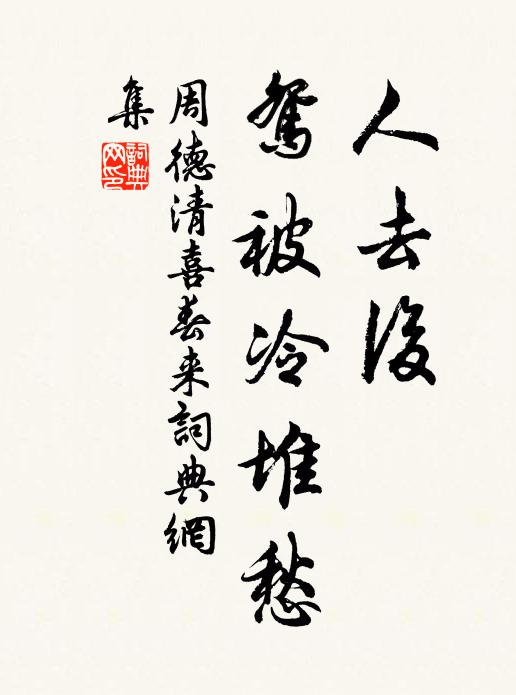 人去後
鴛被冷堆愁
周德清喜春来詞典網
集
詞典
网印